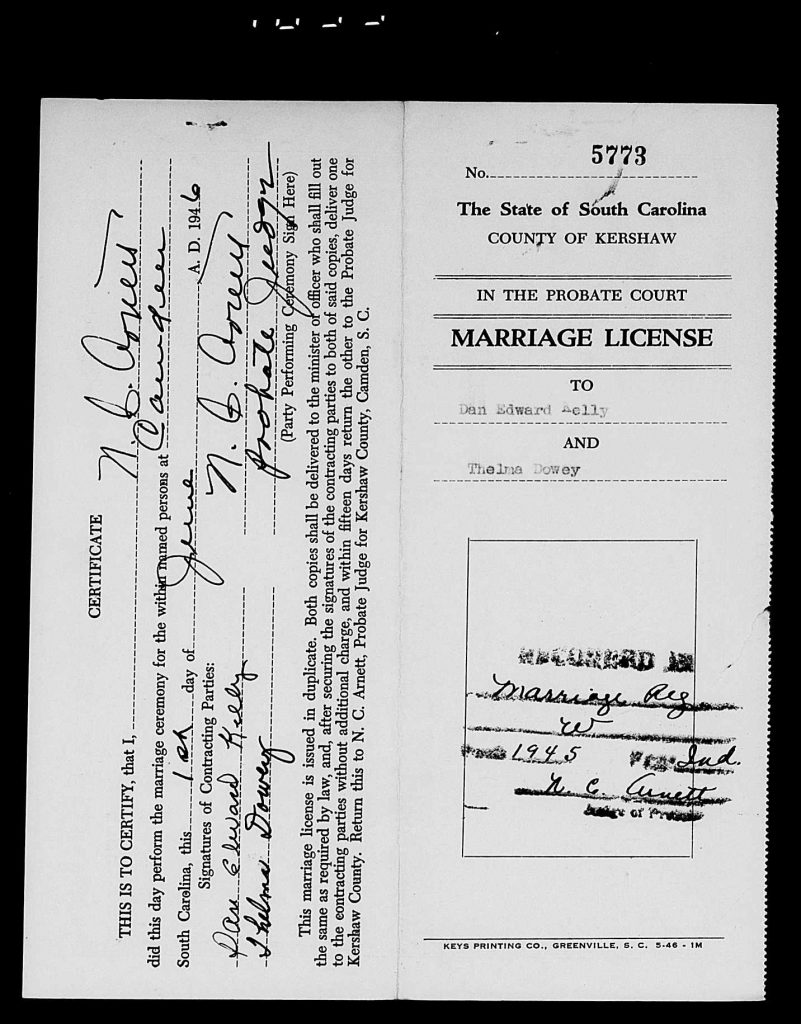 CERTIFICATE
THIS IS TO CERTIFY, that I, N. C. Arnett
did this day perform the marriage ceremony for the within named persons at Camden
South Carolina, this 1st day of June A. D. 1946
Signatures of Contracting Parties:
N. C. Arnett
Dan Edward Kelly
Probate Judge
Thelma Dowey
(Party Performing Ceremony Sign Here)
This marriage license is issued in duplicate. Both copies shall be delivered to the minister or officer who shall fill out
the same as required by law, and, after securing the signatures of the contracting parties to both of said copies, deliver one
to the contracting parties without additional charge, and within fifteen days return the other to the Probate Judge for
Kershaw County. Return this to N. C. Arnett, Probate Judge for Kershaw County, Camden, S. C.
No. 5773
The State of South Carolina
COUNTY OF KERSHAW
IN THE PROBATE COURT
MARRIAGE LICENSE
TO
Dan Edward Kelly
AND
Thelma Dowey
RECORDED IN
Marriage Reg
W
Page 1945 Ind.
N. C. Arnett
Judge of Probate
KEYS PRINTING CO., GREENVILLE, S. C. 5-46 - 1M